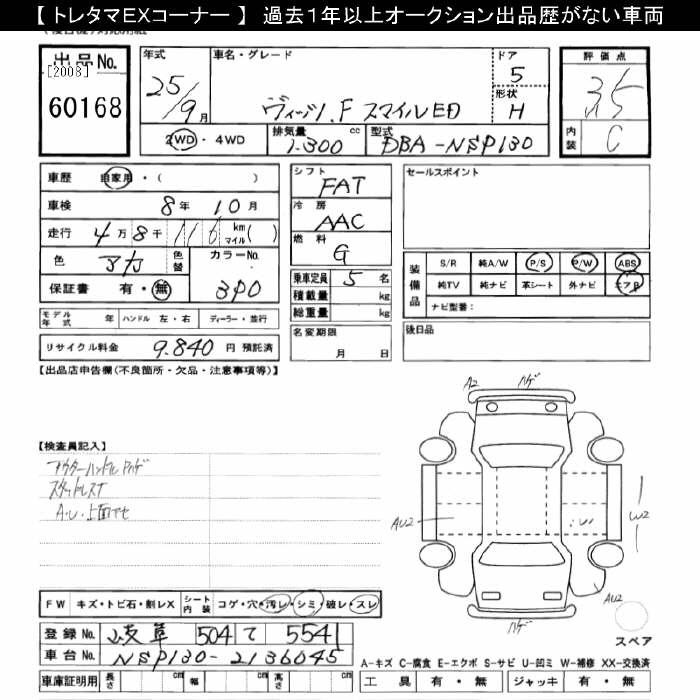 【 トレタマEXコーナー 】 過去1年以上オークション出品歴がない車両
出品No.
[2008]
60168
年式
25/9月
車名・グレード
ヴィッツ1.F スマイルED
ドア
5
形状
H
評価点
3.5
内装
C
2WD・4WD
排気量
1.300 cc
型式
DBA-NSP130
車歴 自家用・( )
車検 8年 10月
走行 4万 8千 116 km マイル( )
色 アカ 色替 カラーNo. 3P0
保証書 有・無
シフト
FAT
冷房
AAC
燃料
G
乗車定員 5 名
積載量 kg
総重量 kg
名変期限
月 日
セールスポイント
装備品
S/R 純A/W P/S P/W ABS
純TV 純ナビ 革シート 外ナビ エアB
ナビ型番：
後日品
モデル年式 年 ハンドル 左・右 ディーラー・並行
リサイクル料金 9.840 円 預託済
【出品店申告欄(不良箇所・欠品・注意事項等)】
【検査員記入】
アウターハンドルハゲ
スタッドレス
A.U.上面キセ
A2 ハゲ
AU2
U1
W2
AU2
ハゲ
スペア
FW キズ・トビ石・割レX シート内装 コゲ・穴・汚レ・シミ・破レ・スレ
登録No. 岐阜 504 て 5541
車台No. NSP130-2136045
車庫証明用 長さ cm 幅 cm 高さ cm
A-キズ C-腐食 E-エクボ S-サビ U-凹ミ W-補修 XX-交換済
工具 有・無 ジャッキ 有・無